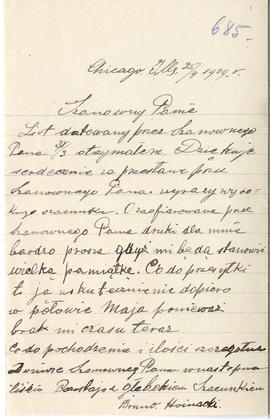 685.
Chicago, Ills, 25/4 1929. r.
Szanowny Panie
List datowany przez Szanownego
Pana 31/3 otrzymałem. Dziękuję
serdecznie za przesłane przez
Szanownego Pana wyrazy wyso-
kiego szacunku. O zaofiarowane przez
Szanownego Pana druki dla mnie
bardzo proszę gdyż mi będą stanowić
wielką pamiątkę. Co do przesyłki
to ja uskutecznię dopiero
w połowie Maja ponieważ
brak mi czasu teraz
Co do pochodzenia i ilości
doniosę Szanownemu Panu w następnem
liście Pozostaję z głębokiem Szacunkiem
Bruno